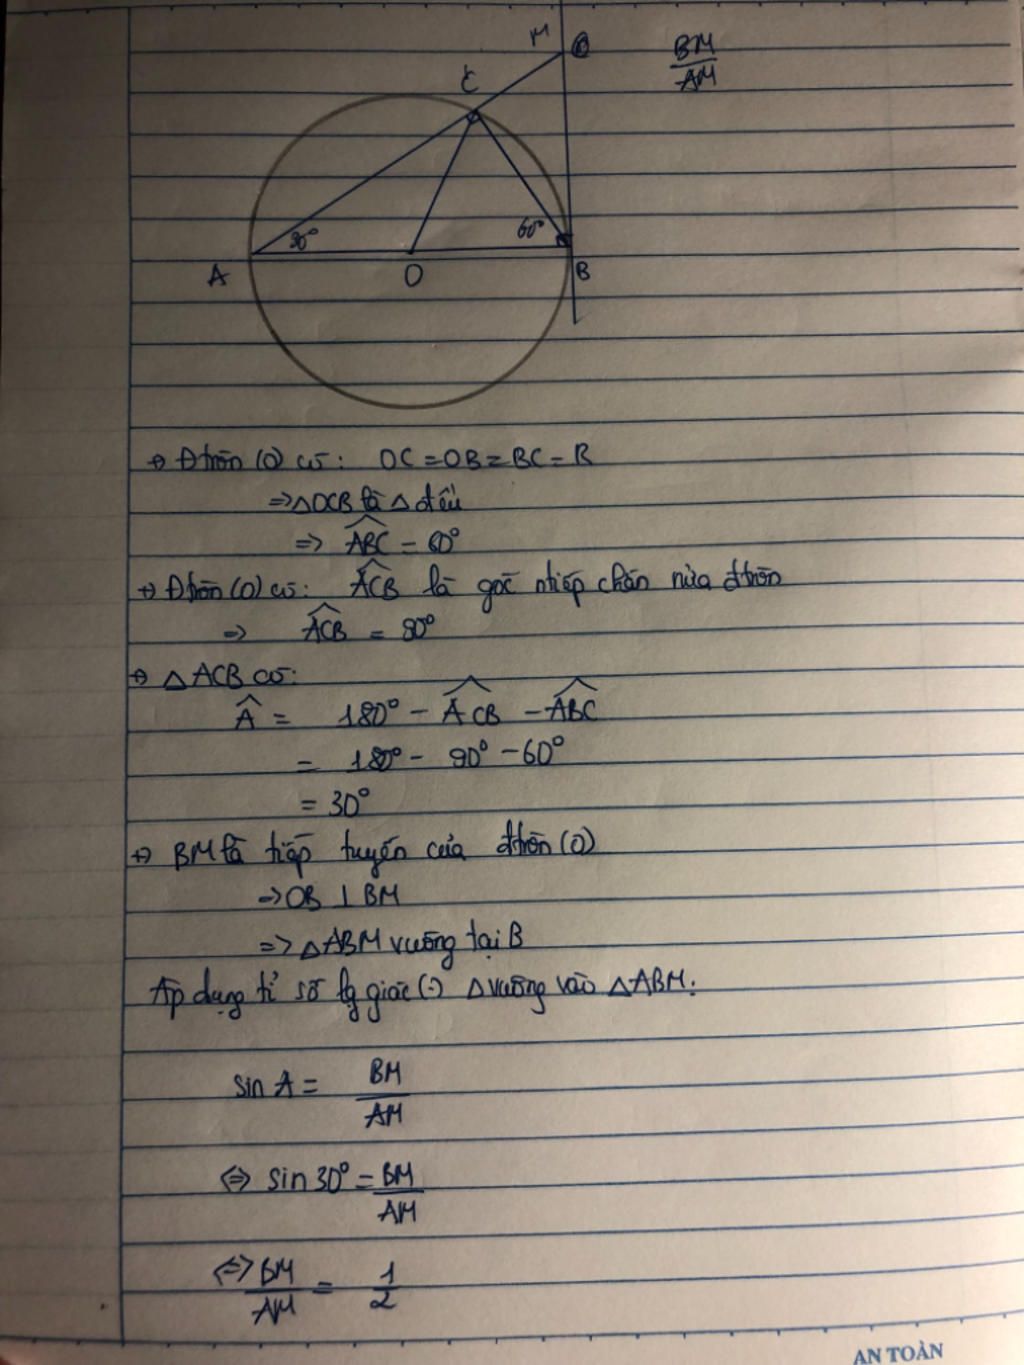 M
C
BM
AM
30°
60°
A
O
B
→ Đtròn (O) có: OC = OB = BC = R
=> △OCB là △ đều
=> ABC = 60°
→ Đtròn (O) có: ACB là góc ntiếp chắn nửa đtròn
=> ACB = 90°
→ △ACB có:
A = 180° - ACB - ABC
= 180° - 90° - 60°
= 30°
→ BM là tiếp tuyến của đtròn (O)
=> OB ⊥ BM
=> △ABM vuông tại B
Áp dụng tỉ số lg giác (-) △ vuông vào △ABM:
sin A = BM
AM
⇔ sin 30° = BM
AM
⇔ BM = 1
AM 2
AN TOÀN